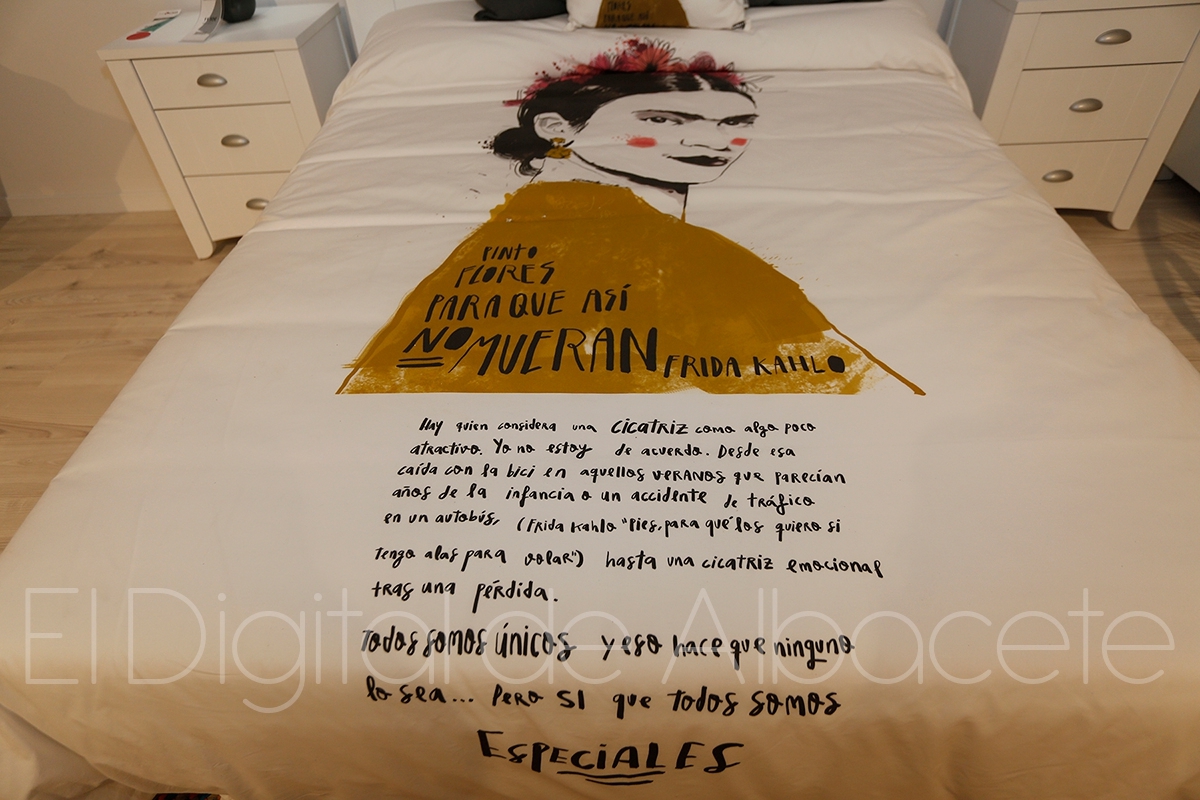 PINTO
FLORES
PARA QUE ASÍ
NO MUERAN FRIDA KAHLO
Hay quien considera una CICATRIZ como algo poco
atractivo. Yo no estoy de acuerdo. Desde esa
caída con la bici en aquellos VERANOS que parecían
años de la infancia o un accidente de tráfico
en un autobús, (Frida Kahlo "Pies, para qué los quiero si
tengo alas para volar") hasta una cicatriz emocional
tras una pérdida.
Todos somos únicos y eso hace que ninguno
lo sea... Pero SI que todos somos
ESPECIALES
El Digital de Albacete